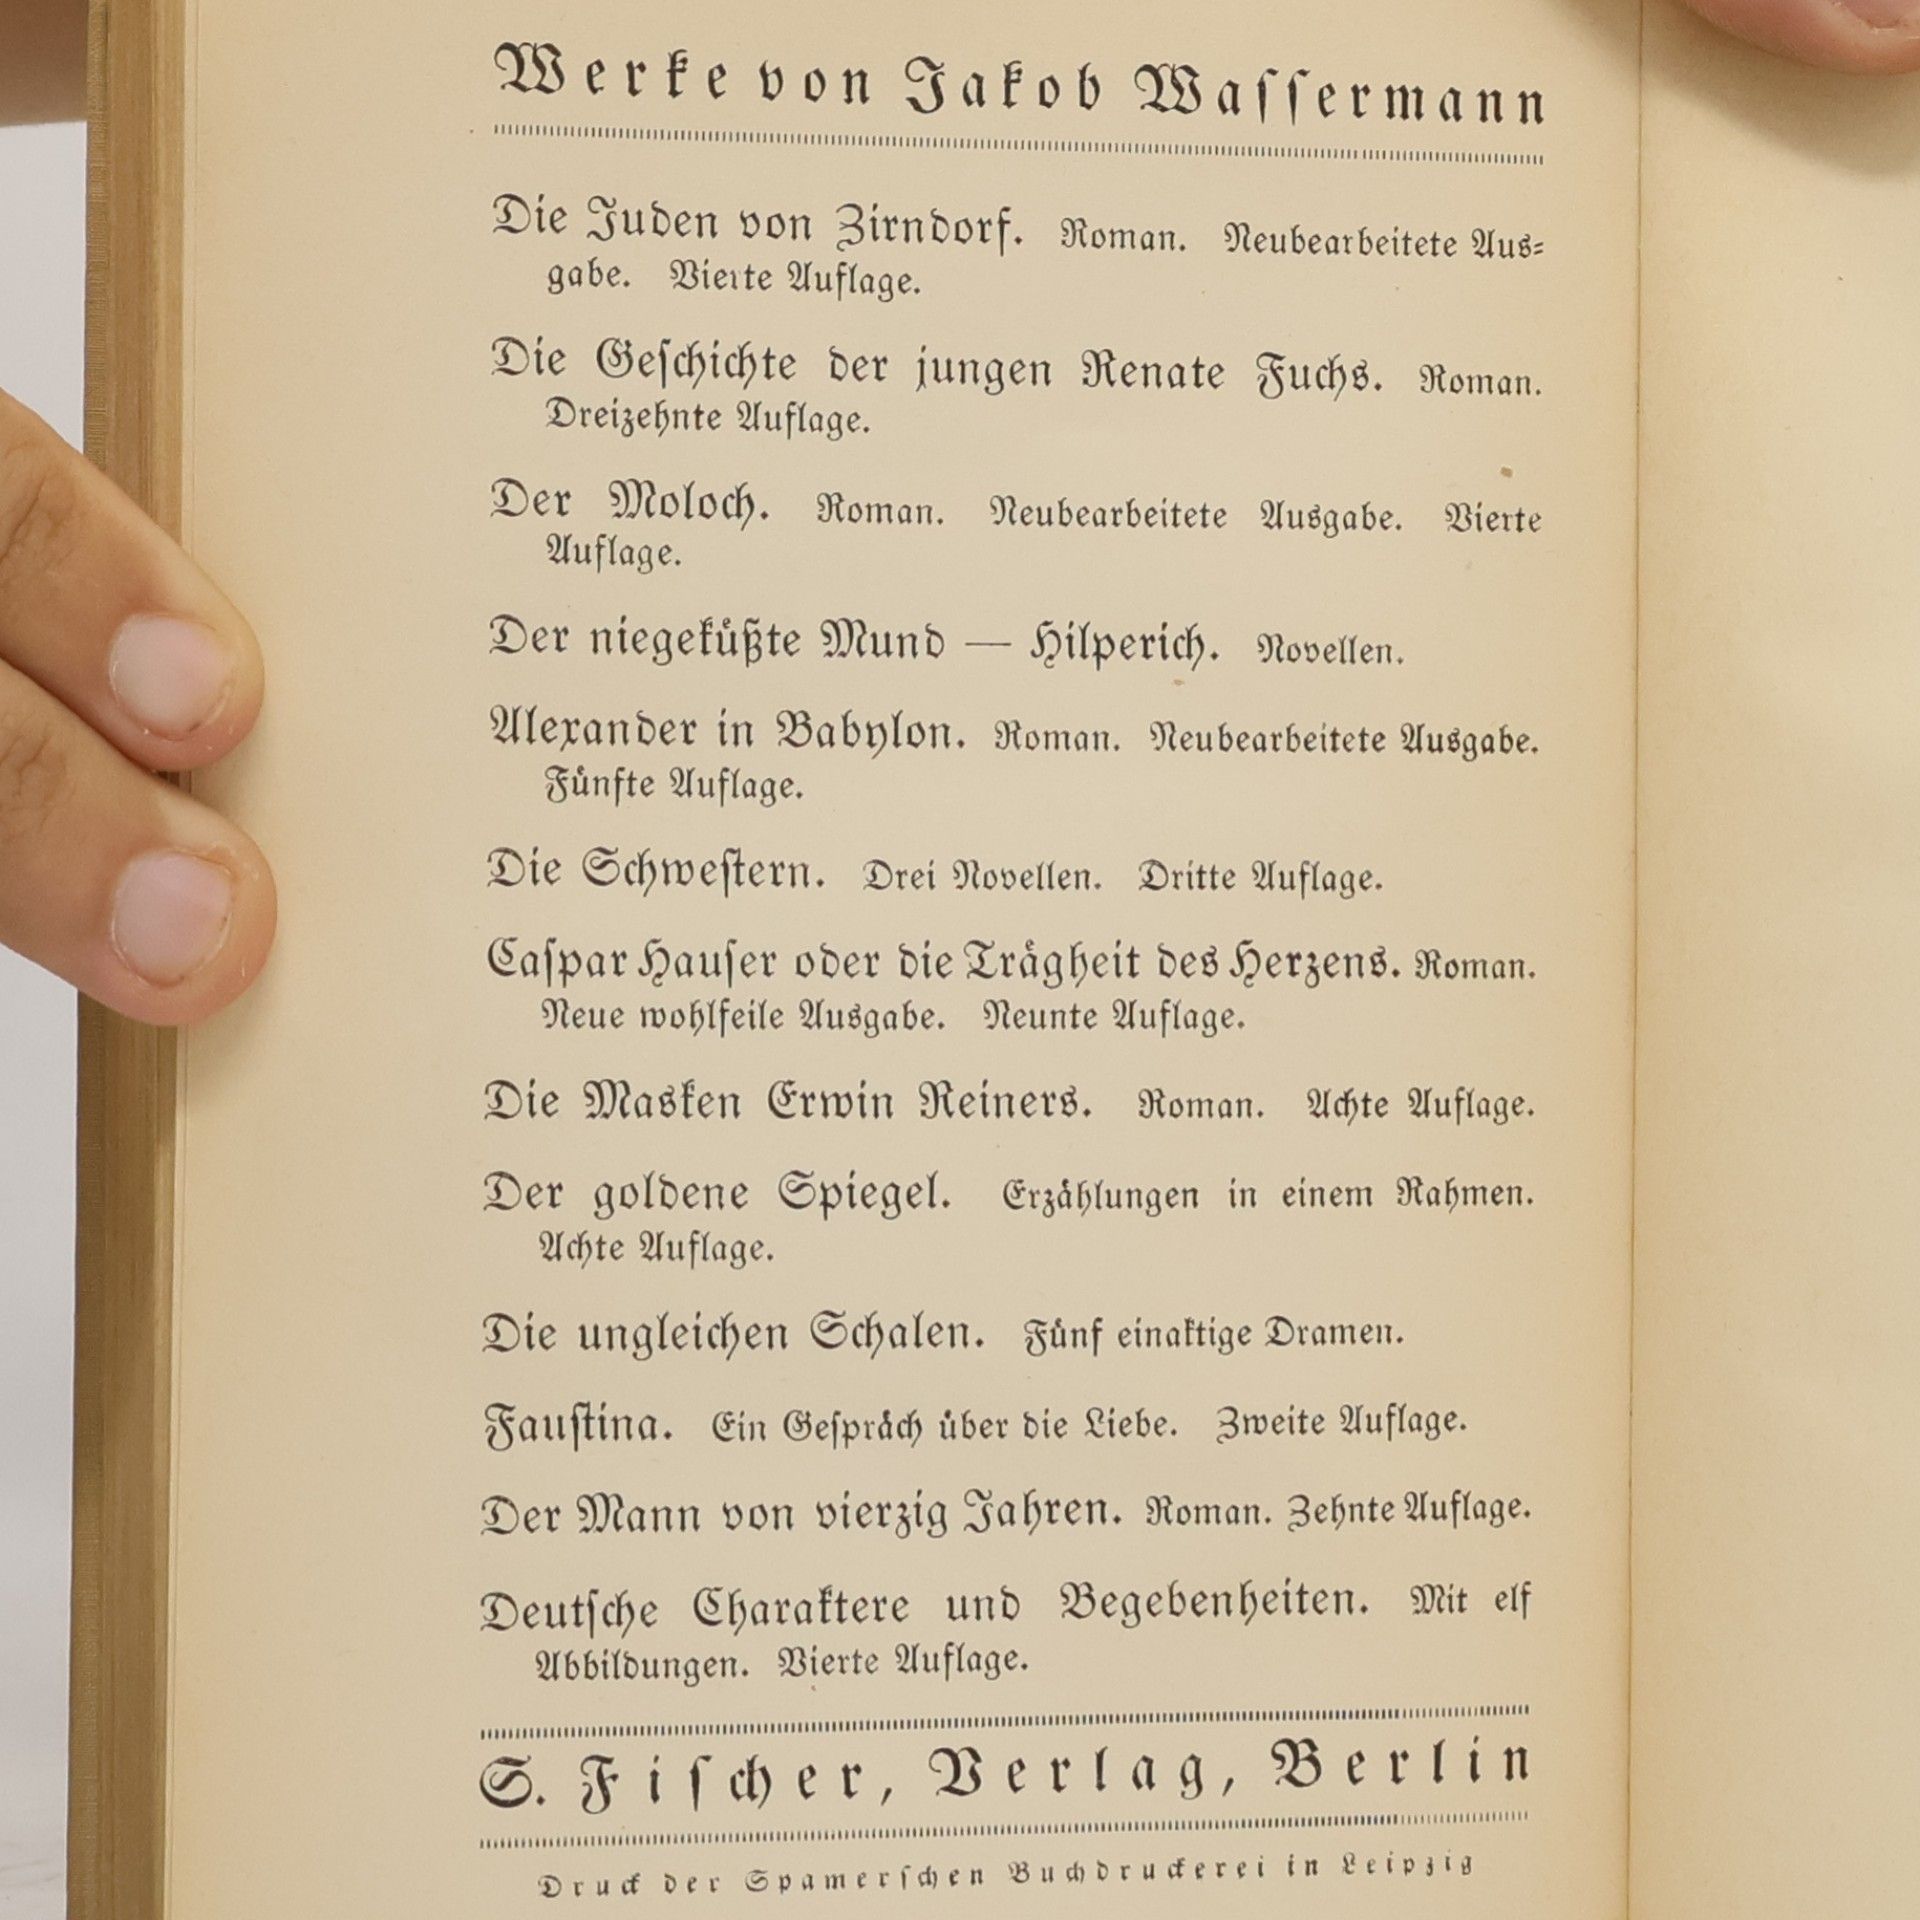 Werke von Jakob Wassermann
Die Juden von Zirndorf. Roman. Neubearbeitete Aus-
gabe. Vierte Auflage.
Die Geschichte der jungen Renate Fuchs. Roman.
Dreizehnte Auflage.
Der Moloch. Roman. Neubearbeitete Ausgabe. Vierte
Auflage.
Der niegeküßte Mund — Hilperich. Novellen.
Alexander in Babylon. Roman. Neubearbeitete Ausgabe.
Fünfte Auflage.
Die Schwestern. Drei Novellen. Dritte Auflage.
Caspar Hauser oder die Trägheit des Herzens. Roman.
Neue wohlfeile Ausgabe. Neunte Auflage.
Die Masken Erwin Reiners. Roman. Achte Auflage.
Der goldene Spiegel. Erzählungen in einem Rahmen.
Achte Auflage.
Die ungleichen Schalen. Fünf einaktige Dramen.
Faustina. Ein Gespräch über die Liebe. Zweite Auflage.
Der Mann von vierzig Jahren. Roman. Zehnte Auflage.
Deutsche Charaktere und Begebenheiten. Mit elf
Abbildungen. Vierte Auflage.
S. Fischer, Verlag, Berlin
Druck der Spamerschen Buchdruckerei in Leipzig